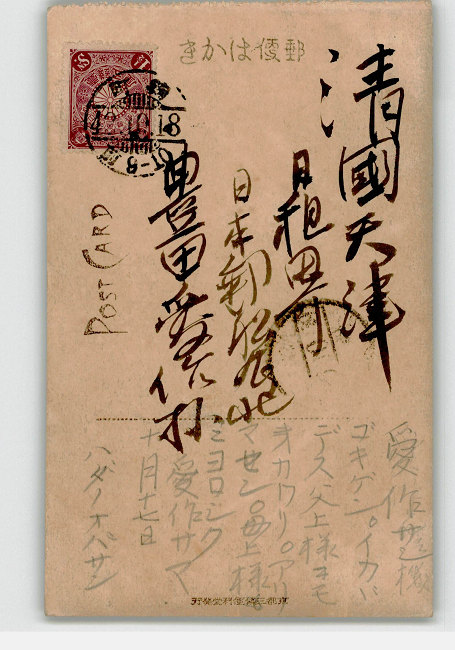 郵便はかき
清國天津
日租界
日本郵船会社
豊田愛作殿
POST CARD
愛作サマ
ゴキゲンイカガ
デス父上様ニモ
オカワリ○アリ
マセン○母上様ニ
ヨロシク
愛作サマ
十月十七日
ハダノオバサン